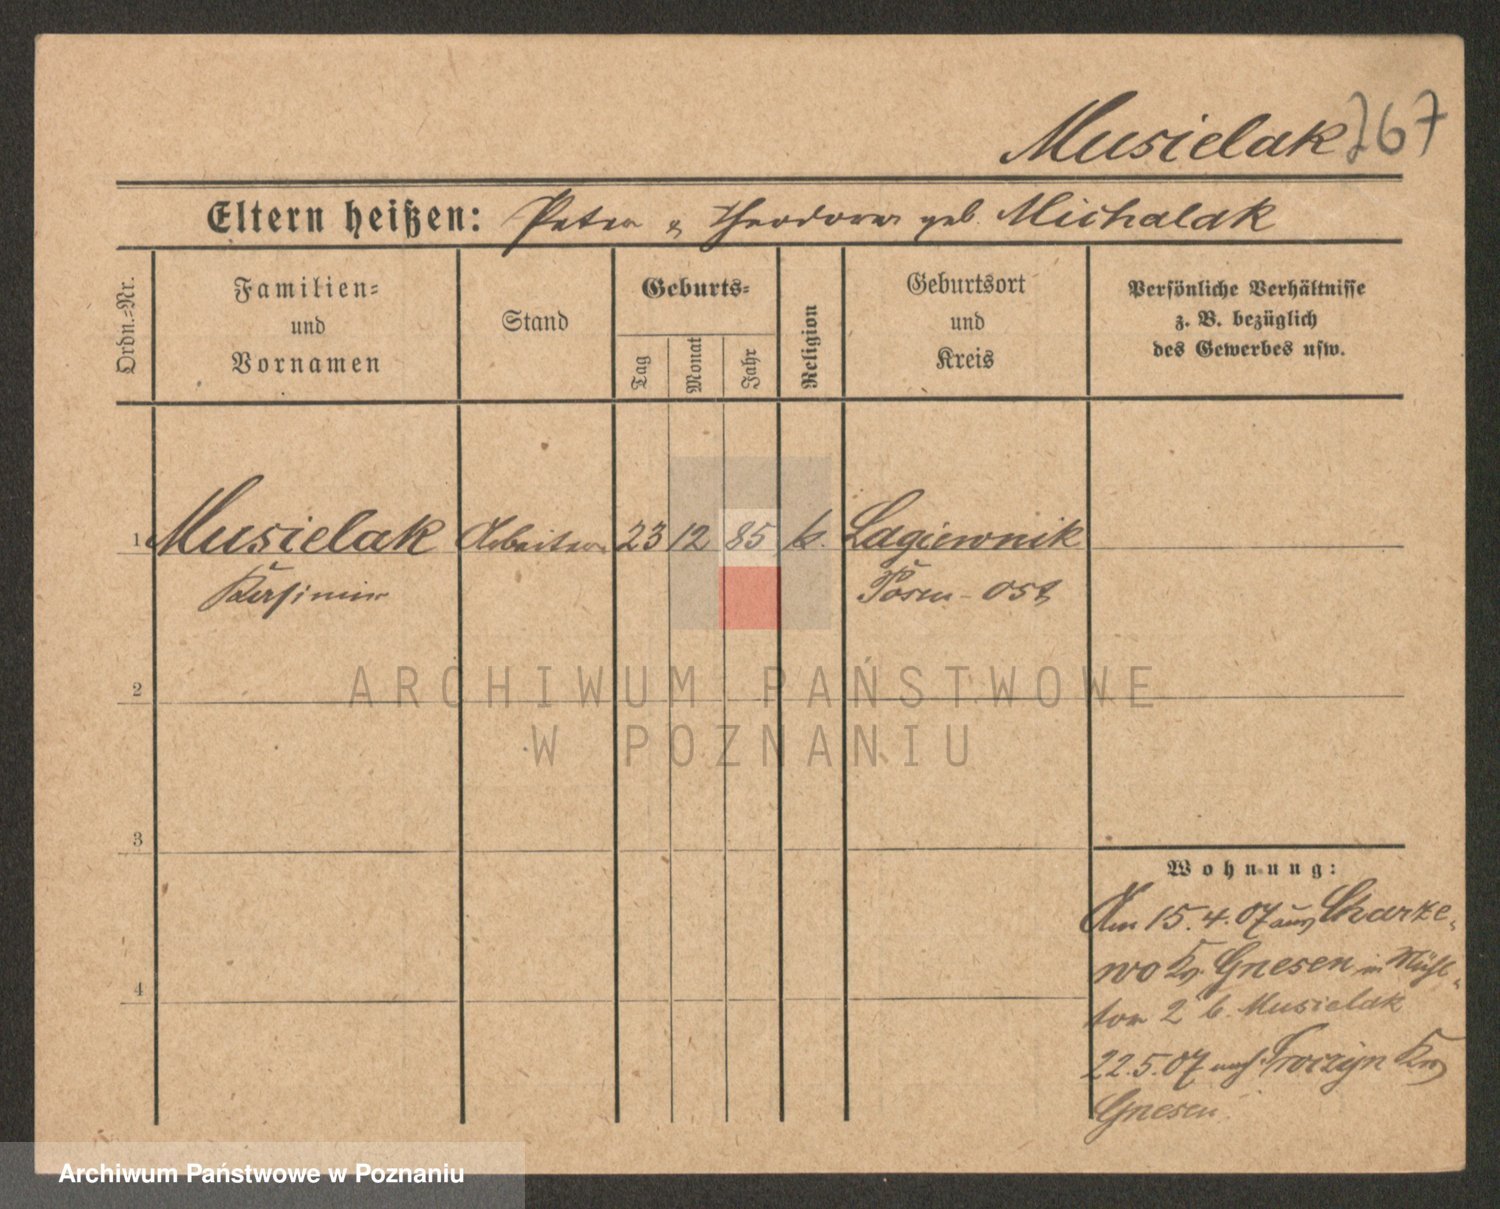 Musielak 267
Eltern heißen: Peter & Theodora geb. Michalak
Ordn.=Nr.
Familien=
und
Vornamen
Stand
Geburts=
Tag
Monat
Jahr
Religion
Geburtsort
und
Kreis
Persönliche Verhältnisse
z. B. bezüglich
des Gewerbes usw.
1 Musielak Arbeiter 23 12 85 k. Lagiewnik
Kasimir Posen-Ost
2
ARCHIWUM PAŃSTWOWE
W POZNANIU
3
Wohnung:
Am 15.4.07 aus Charze-
wo Kr. Gnesen in Mühl-
tor 2 b. Musielak
4
22.5.07 nach Kr.
Gnesen.
Archiwum Państwowe w Poznaniu